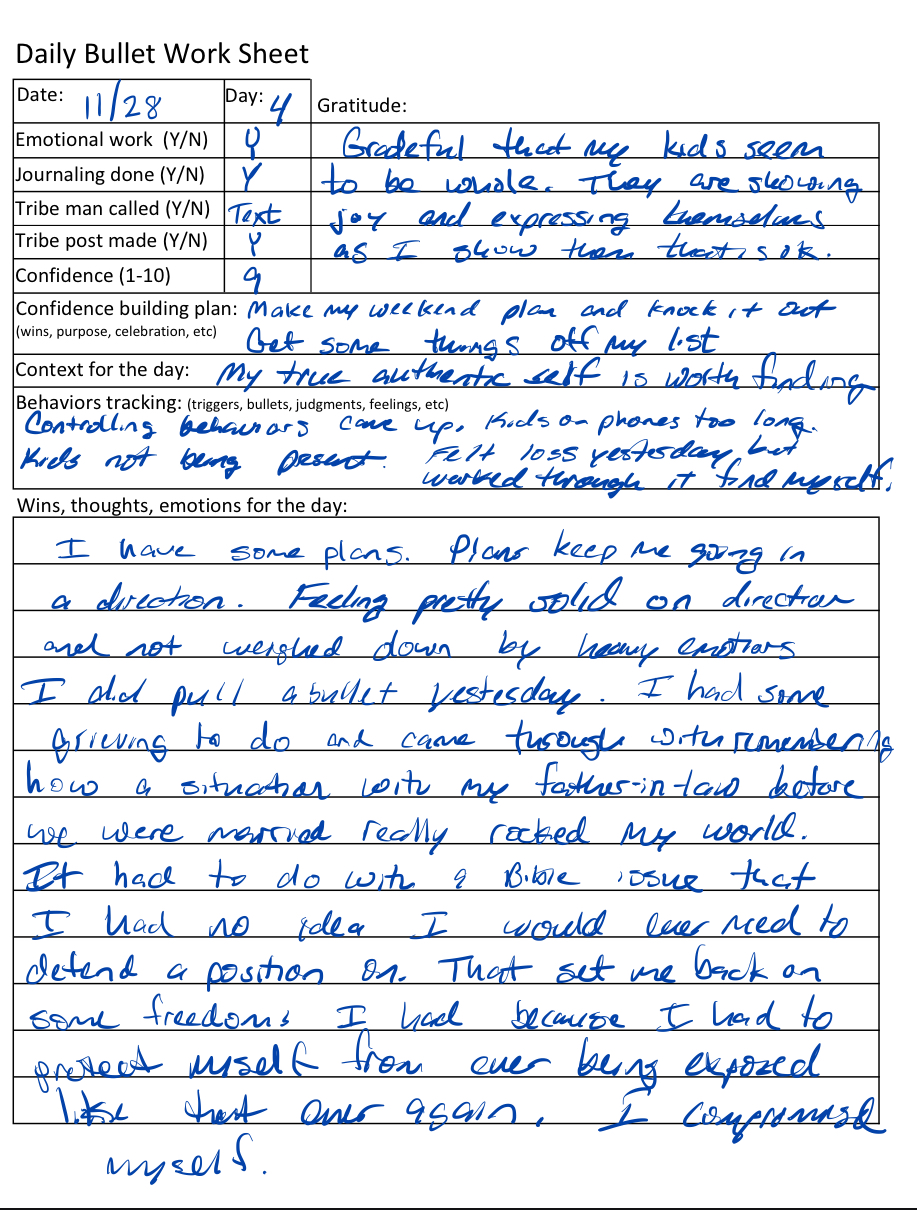 Daily Bullet Work Sheet
Date: 11/28 Day: 4 Gratitude:
Emotional work (Y/N) Y Grateful that my kids seem
Journaling done (Y/N) Y to be whole. They are showing
Tribe man called (Y/N) Text joy and expressing themselves
Tribe post made (Y/N) Y as I show them that is ok.
Confidence (1-10) 9
Confidence building plan: Make my weekend plan and knock it out
(wins, purpose, celebration, etc) Get some things off my list
Context for the day: My true authentic self is worth finding
Behaviors tracking: (triggers, bullets, judgments, feelings, etc)
Controlling behaviors came up. Kids on phones too long.
Kids not being present. Felt loss yesterday, but
worked through it find myself.
Wins, thoughts, emotions for the day:
I have some plans. Plans keep me going in
a direction. Feeling pretty solid on direction
and not weighed down by heavy emotions
I did pull a bullet yestesday. I had some
grieving to do and came through with remembering
how a situation with my father-in-law before
we were married really rocked my world.
It had to do with a Bible issue that
I had no idea I would ever need to
defend a position on. That set me back on
some freedoms I had because I had to
protect myself from ever being exposed
like that ever again. I compromised
myself.